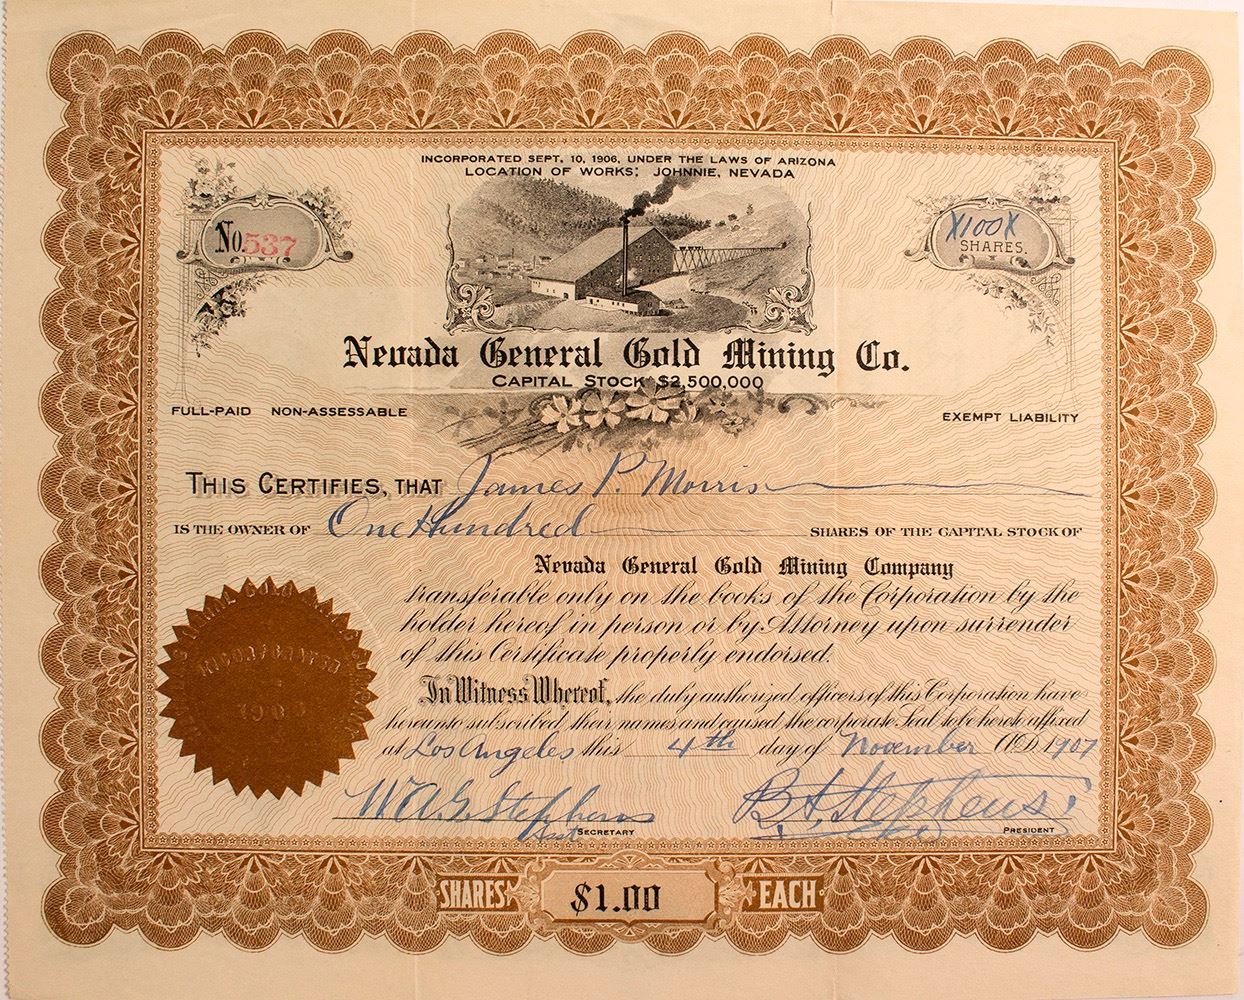 INCORPORATED SEPT. 10, 1906, UNDER THE LAWS OF ARIZONA
LOCATION OF WORKS: JOHNNIE, NEVADA
No 537
X100X
SHARES.
Nevada General Gold Mining Co.
CAPITAL STOCK $2,500,000
FULL-PAID NON-ASSESSABLE
EXEMPT LIABILITY
THIS CERTIFIES, THAT James P. Morris
IS THE OWNER OF One Hundred SHARES OF THE CAPITAL STOCK OF
Nevada General Gold Mining Company
transferable only on the books of the Corporation by the
holder hereof in person or by Attorney upon surrender
of this Certificate properly endorsed.
In Witness Whereof, the duly authorized officers of this Corporation have
hereunto subscribed their names and caused the corporate Seal to be hereto affixed
at Los Angeles this 4th day of November A.D. 1907
INCORPORATED
W.A.G. Stephens
Asst SECRETARY
Stephens
PRESIDENT
SHARES $1.00 EACH